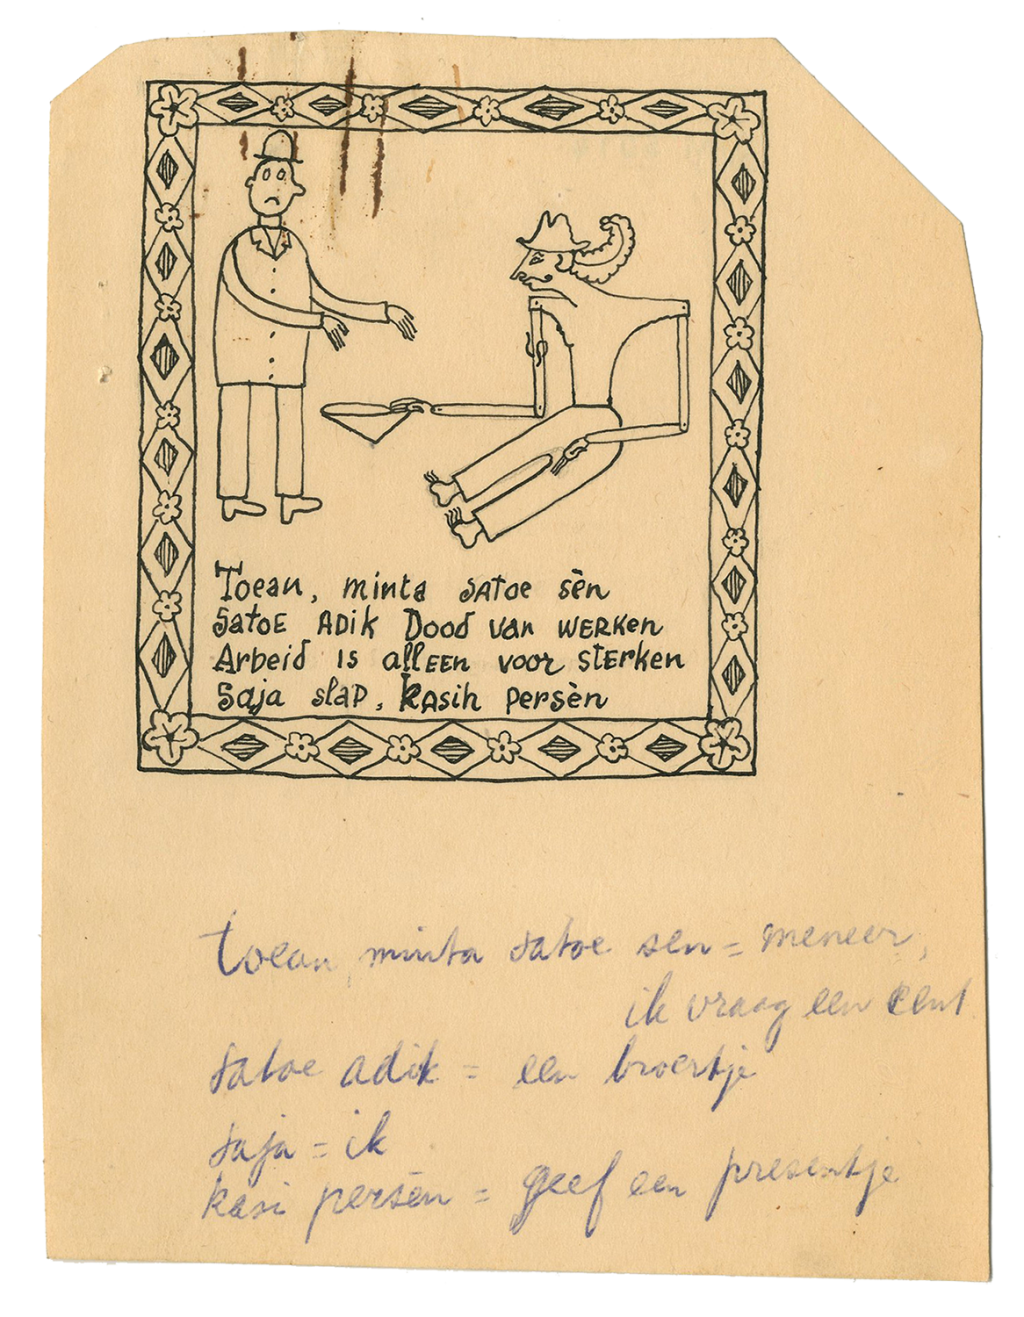 Toean, minta satoe sèn
Satoe adik Dood van werken
Arbeid is alleen voor sterken
Saja slap, kasih persèn
toean, minta satoe sen = meneer,
ik vraag een cent
satoe adik = een broertje
saja = ik
kasi persèn = geef een presentje